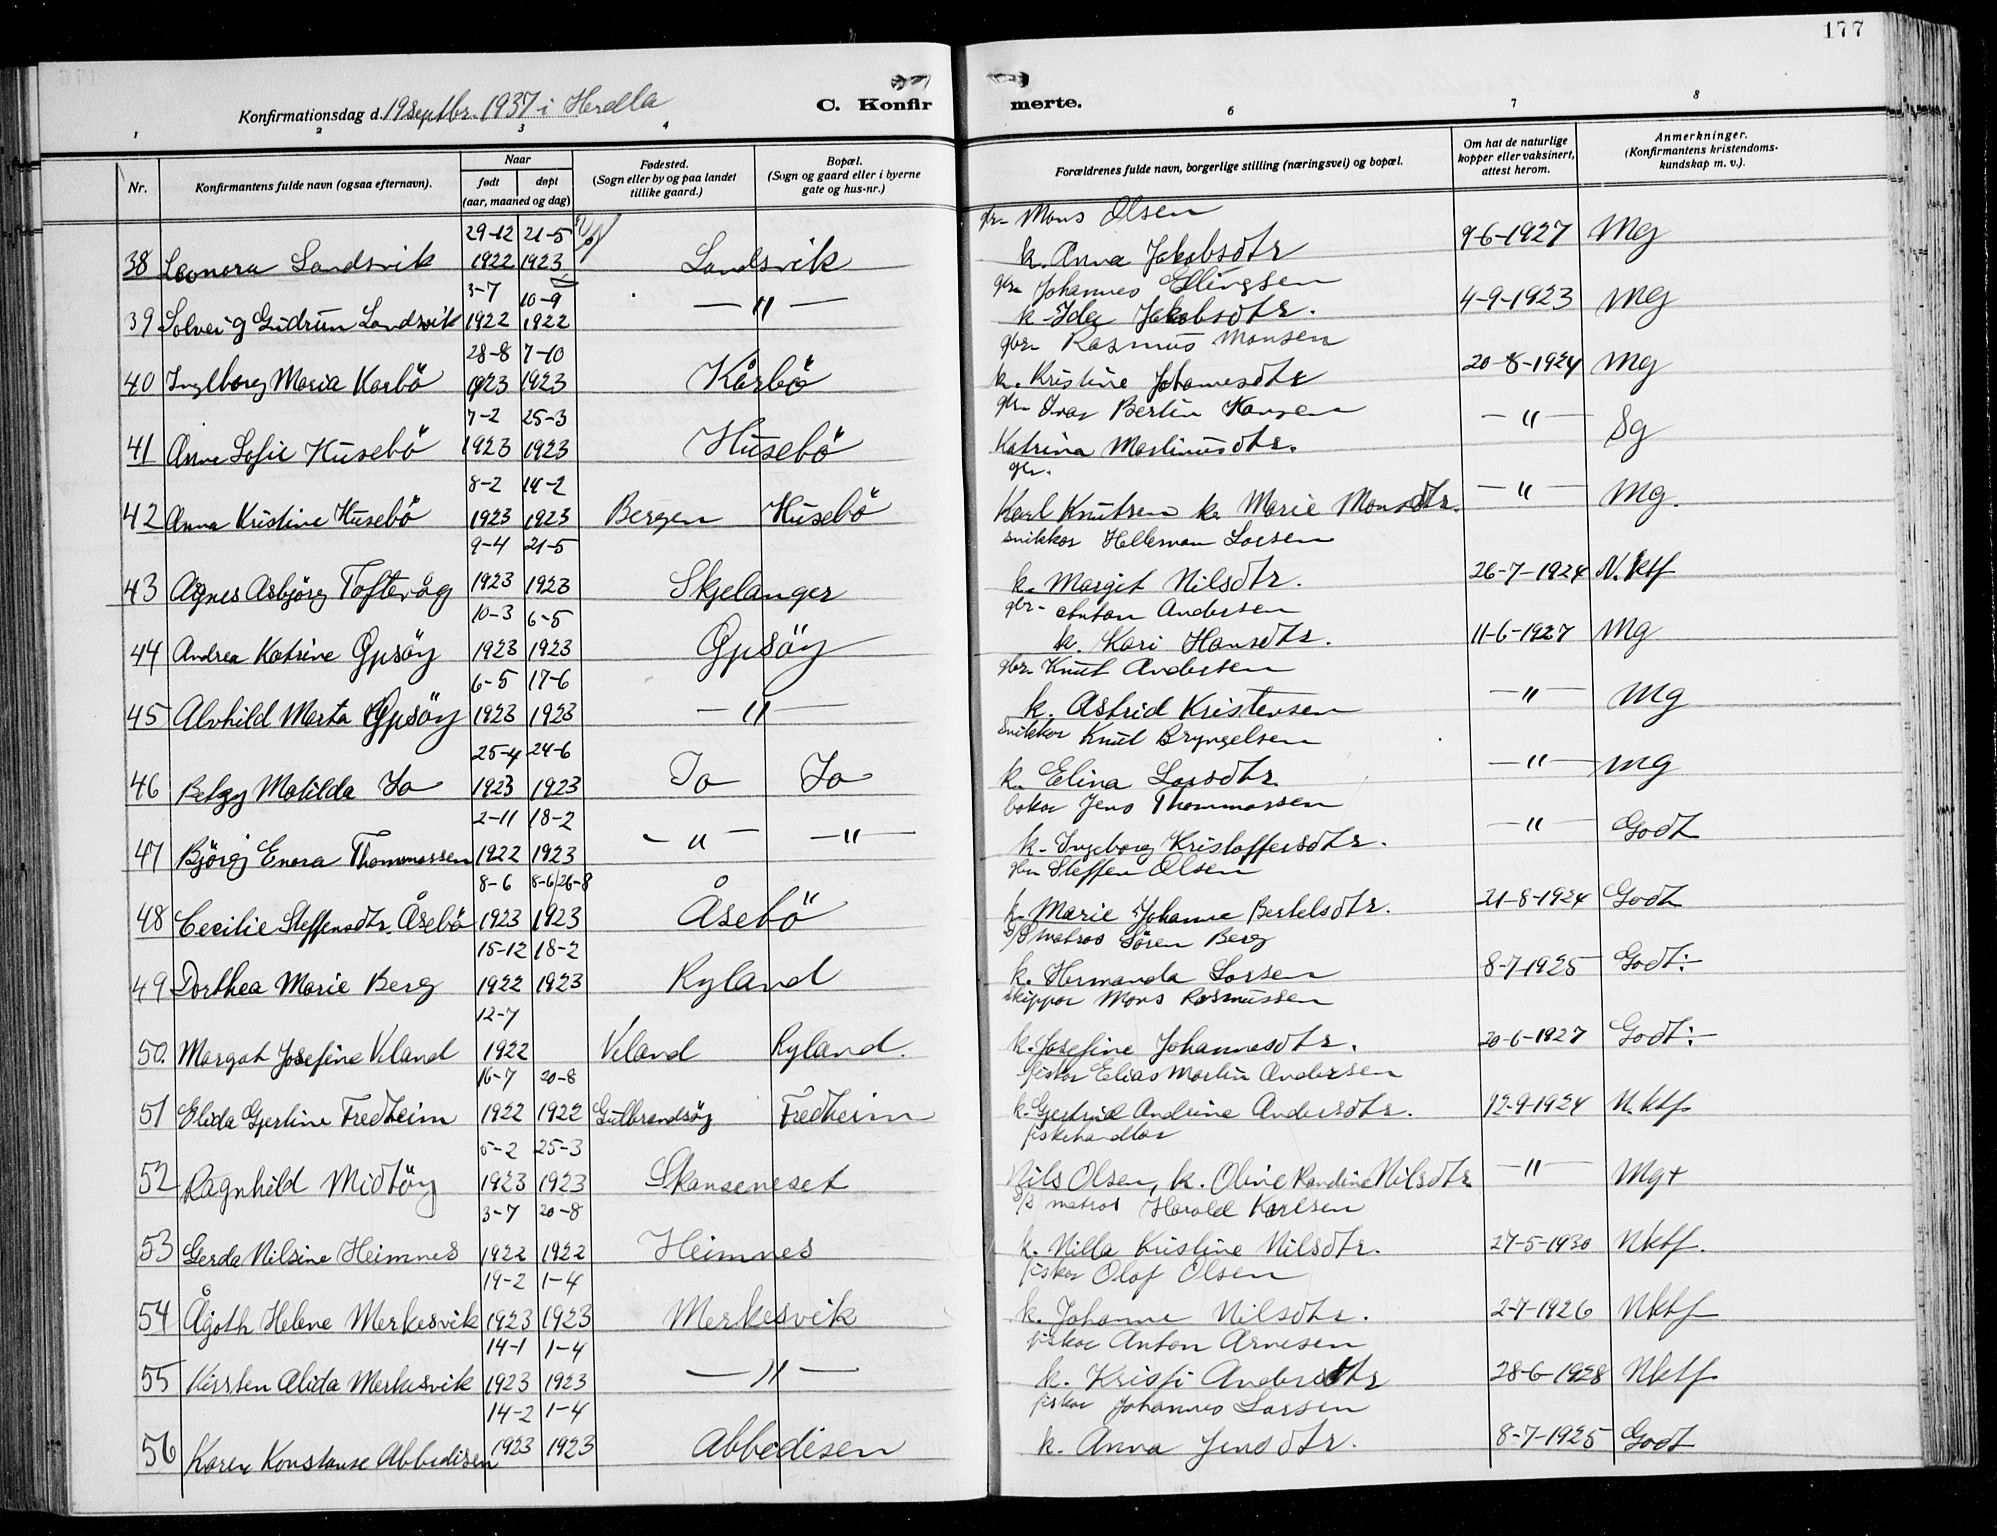 177
Konfirmationsdag d. 19 septbr. 1937 i Herdla
C. Konfirmerte.
1 2 3 4 6 7 8
Nr. Konfirmantens fulde navn (ogsaa efternavn). Naar født døpt (aar, maaned og dag) Fødested. (Sogn eller by og paa landet tillike gaard.) Bopæl. (Sogn og gaard eller i byerne gate og hus-nr.) Forældrenes fulde navn, borgerlige stilling (næringsvei) og bopæl. Om hat de naturlige kopper eller vaksinert, attest herom. Anmerkninger. (Konfirmantens kristendomskundskap m. v.).
29-12 21-5 gbr- Mons Olsen
38 Leonora Landsvik 1922 1923 Landsvik k. Anna Jakobsdtr 9-6-1927 Mg
3-7 10-9 gbr. Johannes Ellingsen
39 Solveig Gudrun Landsvik 1922 1922 —"— k. Ida Jakobsdtr. 4-9-1923 Mg
28-8 7-10 gbr- Rasmus Monsen
40 Ingeborg Maria Karbö 1923 1923 Kårbö k. Kristine Johannesdtr 20-8-1924 Mg
7-2 25-3 gbr. Ivar Bertin Hansen
41 Anna Sofie Husebö 1923 1923 Husebö Katrina Martinusdtr. —"— Sg
8-2 14-2 gbr.
42 Anna Kristine Husebö 1923 1923 Bergen Husebö Karl Knutsen k. Marie Monsdtr. —"— Mg.
9-4 21-5 snikkar Helleman Larsen
43 Agnes Asbjörg Toftevåg 1923 1923 Skjelanger k. Margit Nilsdtr. 26-7-1924 N. ktf
10-3 6-5 gbr- Anton Andersen
44 Andrea Katrine Gpsöy 1923 1923 Gpsöy k. Kari Hansdtr. 11-6-1927 Mg
6-5 17-6 gbr. Knut Andersen
45 Alvhild Marta Gpsöy 1923 1923 —"— k. Astrid Kristensen —"— Mg
25-4 24-6 Snikkar Knut Bryngelsen
46 Betzy Matilda Io 1923 1923 Io Io k. Elina Larsdtr. —"— Mg
2-11 18-2 bakar Jens Thommassen
47 Björg Enora Thommassen 1922 1923 —"— —"— k. Ingeborg Kristoffersdtr. —"— Godt
8-6 8-6/26-8 gbr Steffen Olsen
48 Cecilie Steffensdtr. Åsebö 1923 1923 Åsebö k. Marie Johanne Bertelsdtr. 21-8-1924 Godt
15-12 18-2 matros Sören Berg
49 Dorthea Marie Berg 1922 1923 Ryland k. Hermanda Larsen 8-7-1925 Godt÷
12-7 skippar Mons Rasmussen
50. Margot Josefine Veland 1922 Veland Ryland. k. Josefine Johannesdtr. 20-6-1927 Godt÷
16-7 20-8 fiskar Elias Martin Andersen
51 Elida Gjertine Fredheim 1922 1922 Gulbrandsöy Fredheim k. Gjertrud Andrine Andersdtr. 12-9-1924 N.ktf.
5-2 25-3 fiskehandlar
52 Ragnhild Midtöy 1923 1923 Skanseneset Nils Olsen, k. Oline Randine Nilsdtr —"— Mg+
3-7 20-8 matros Harald Karlsen
53 Gerda Nilsine Heimnes 1922 1922 Heimnes k. Nilla Kristine Nilsdtr. 27-5-1930 Nktf.
14-2 1-4 fiskar Olaf Olsen
54 Ågoth Helene Merkesvik 1923 1923 Merkesvik k. Johanne Nilsdtr. 2-7-1926 Nktf
14-1 1-4 fiskar Anton Arnesen
55 Kirsten Alida Merkesvik 1923 1923 —"— k. Kristi Andersdtr 28-6-1928 Nktf
14-2 1-4 fiskar Johannes Larsen
56 Karen Konstanse Abbedisen 1923 1923 Abbedisen k. Anna Jensdtr. 8-7-1925 Godt